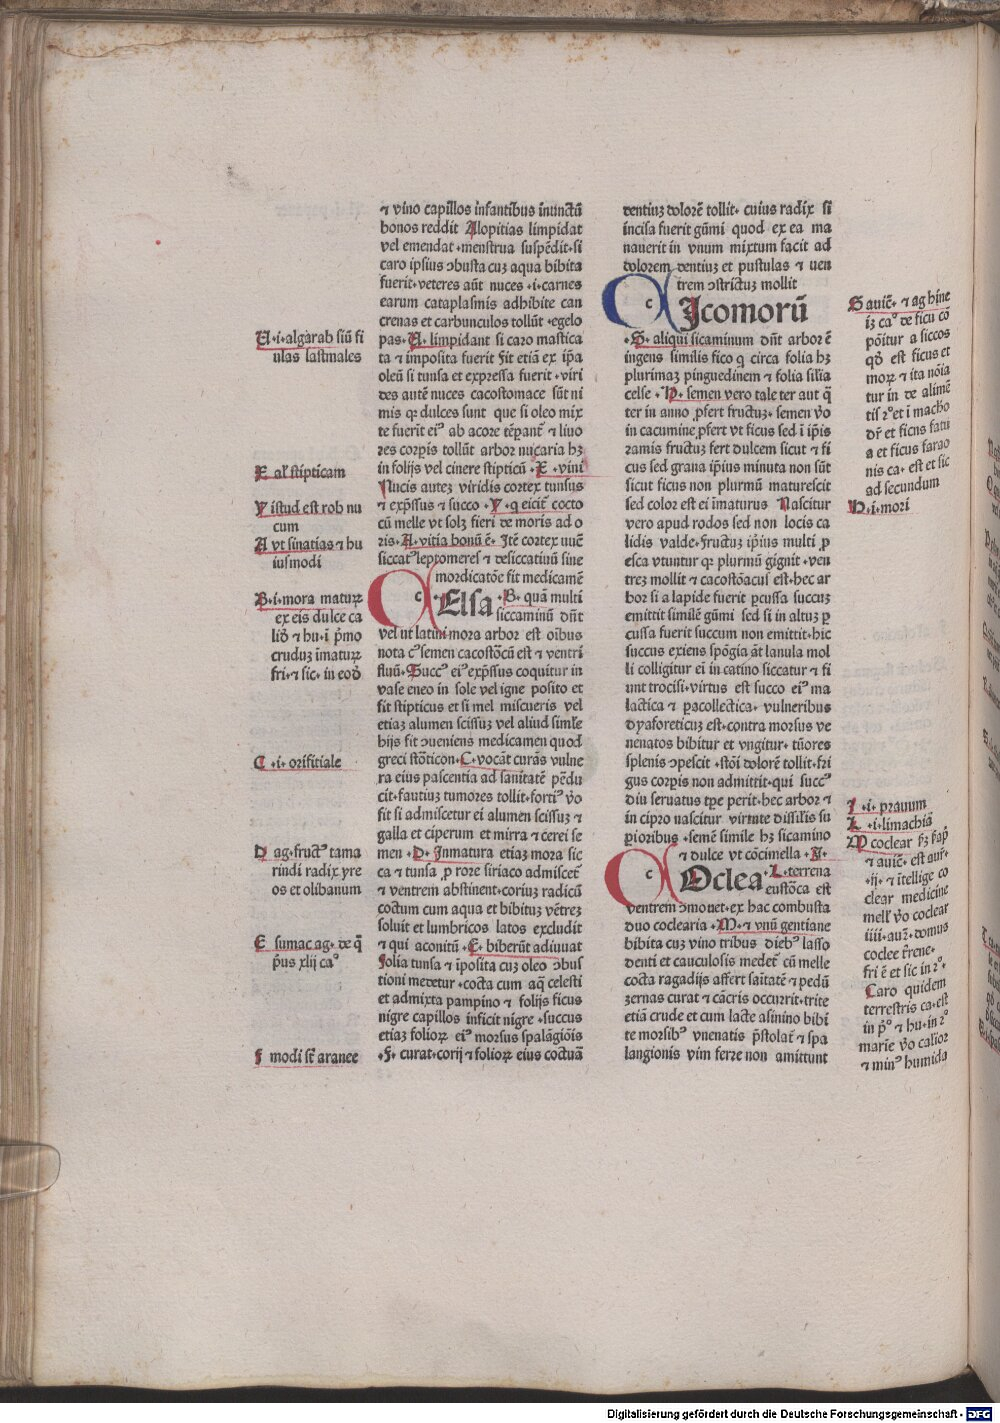 ⁊ vino capillos infantibus inunctū
bonos reddit Alopitias limpidat
vel emendat ·menstrua suspēdit·si
caro ipsius ↄbusta cuȝ aqua bibita
fuerit·veteres aūt nuces ·i·carnes
earum cataplasmis adhibite can
crenas et carbunculos tollūt·egelo
pas· limpidant si caro mastica
ta ⁊ imposita fuerit fit etiā ex ip̄a
oleū si tunsa et expressa fuerit ·viri
des autē nuces cacostomace sūt ni
mis qꝛ dulces sunt que si oleo mix
te fuerit eiꝰ ab acore tēpant̄ ⁊ liuo
res corpis tollūt arbor nucaria hȝ
in folijs vel cinere stipticū ·E ·vini
Nucis auteȝ viridis cortex tunsus
⁊ exp̄ssus ⁊ succo ·Y· q eicit̄ cocto
cū melle vt solȝ fieri de moris ad o
ris·A·vitia bonū ē· Itē cortex nucē
siccatꝰ leptomereſ ⁊ desiccatiuū sine
mordicatōe fit medicamē
c
·Elsa ·B· quā multi
siccaminū dn̄t
vel ut latini mora arbor est oībus
nota cꝰ semen cacostōcū est ⁊ ventri
fluū· Succꝰ eiꝰ exp̄ssus coquitur in
vase eneo in sole vel igne posito et
fit stipticus et si mel miscueris vel
etiaȝ alumen scissuȝ vel aliud simīle
hijs fit ↄueniens medicamen quod
greci stōticon·C·vocāt curās vulne
ra eius pascentia ad sanitatē pēdu
cit·fautiuȝ tumores tollit·fortiꝰ ṽo
fit si admiscetur ei alumen scissuȝ ⁊
galla et ciperum et mirra ⁊ cerei se
men ·D· Inmatura etiaȝ mora sic
ca ⁊ tunsa p rore siriaco admiscet̄
⁊ ventrem abstinent·coriuȝ radicū
coctum cum aqua et bibituȝ vētreȝ
soluit et lumbricos latos excludit
⁊ qui aconitū ·E· biberūt adiuuat
folia tunsa ⁊ īposita cuȝ oleo ↄbus
tioni medetur ·cocta cum aq̄ celesti
et admixta pampino ⁊ folijs ficus
nigre capillos inficit nigre ·succus
etiaȝ folioꝝ eiꝰ morsus spalāgiōis
·F· curat·corij ⁊ folioꝝ eius coctuā
·i·algarab siū fi
ulas lastmales
E al' stipticam
Y istud est rob nu
cum
A vt sinatias ⁊ hu
iusmodi
B·i·mora maturꝝ
ex eis dulce ca
lid̄ ⁊ hu·ī p̄mo
cruduȝ īmaturꝝ
fri·⁊ sic·in eod̄
C ·i· orifitiale
D ag·fructꝰ tama
rindi radix yre
os et olibanum
E sumac ag· de q̄
p̄us xlij caꝰ
F modi st̄ aranee
dentiuȝ dolorē tollit· cuius radix si
incisa fuerit gūmi quod ex ea ma
nauerit in vnum mixtum facit ad
dolorem dentiuȝ et pustulas ⁊ uen
trem ↄstrictuȝ mollit
c
Icomorū
·G· aliqui sicaminum dn̄t arbor ē
ingens similis fico q circa folia hȝ
plurimaȝ pinguedinem ⁊ folia silīa
celse · semen vero tale ter aut q̄
ter in anno ꝓfert fructuȝ· semen ṽo
in cacumine ꝓfert vt ficus sed ī ip̄is
ramis fructuȝ fert dulcem sicut ⁊ fi
cus sed grana ip̄ius minuta non sūt
sicut ficus non plurmū maturescit
sed color est ei īmaturus Nascitur
vero apud rodos sed non locis ca
lidis valde·fructuȝ ip̄ius multi ꝓ
esca vtuntur qꝛ plurmū gignit ·ven
treȝ mollit ⁊ cacostōacuſ est·hec ar
bor si a lapide fuerit ꝑcussa succuȝ
emittit similē gūmi sed si in altuȝ ꝑ
cussa fuerit succum non emittit·hic
succus exiens spōgia āt lanula mol
li colligitur ei in catino siccatur ⁊ fi
unt trocisi·virtus est succo eiꝰ ma
lactica ⁊ ꝑacollectica· vulneribus
dyaforeticuȝ est·contra morsus ve
nenatos bibitur et vngitur· tūores
splenis ↄpescit ·stōi dolorē tollit·fri
gus corpis non admittit·qui succꝰ
diu seruatus tp̄e perit·hec arbor ⁊
in cipro nascitur virtute dissilis su
ꝑioribus ·semē simile hȝ sicamino
⁊ dulce vt cōcimella ·I·
c
Oclea ·L·terrena
eustōca est
ventrem ↄmouet·ex hac combusta
duo coclearia ·M·⁊ vnū gentiane
bibita cuȝ vino tribus diebꝰ lasso
denti et cauculosis medet̄ cū melle
cocta ragadijs affert saītatē ⁊ pedū
ȝernas curat ⁊ cācris occurrit·trite
etiā crude et cum lacte asinino bibi
te morsibꝰ vnenatis p̄stolat̄ ⁊ spa
langionis vim ferȝe non amittunt
G auicē· ⁊ ag hīne
iȝ caꝰ de ficu cō
pōitur a siccos
qd̄ est ficus et
morꝝ ⁊ ita nōia
tur in de alimē
tis ꝛꝰ et ī macho
dr̄ et ficus fatu
a et ficus farao
nis ca· est et sic
ad secundum
·i· mori
I· ·i· prauum
L ·i·limachiā
M coclear
⁊ auicē· est aur·
·ij· ⁊ ītellige co
clear medicine
mell' ṽo coclear
iiii·aur̄·domus
coclee
fri ē et sic in ꝛꝰ·
Caro quidem
terrestris ca·est
in p̄ꝰ ⁊ hu·in ꝛꝰ
marie ṽo calior
⁊ minꝰ humida
Digitalisierung gefördert durch die Deutsche Forschungsgemeinschaft - DFG